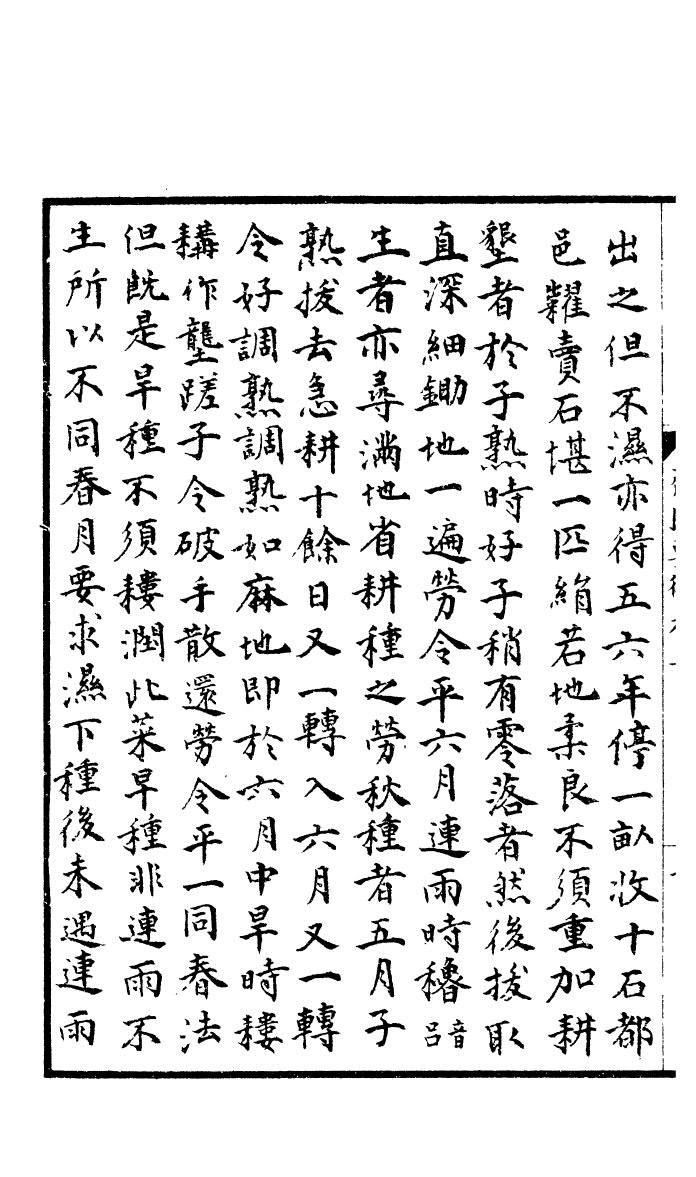 出之但不濕亦得五六年停一畝收十石都
邑糶賣石堪一匹絹若地柔良不須重加耕
墾者於子熟時好子稍有零落者然後拔取
直深細鋤地一遍勞令平六月連雨時穭音呂
生者亦尋滿地省耕種之勞秋種者五月子
熟拔去急耕十餘日又一轉入六月又一轉
令好調熟調熟如麻地即於六月中旱時耬
耩作壟蹉子令破手散還勞令平一同春法
但旣是旱種不須耬潤此菜旱種非連雨不
生所以不同春月要求濕下種後未遇連雨